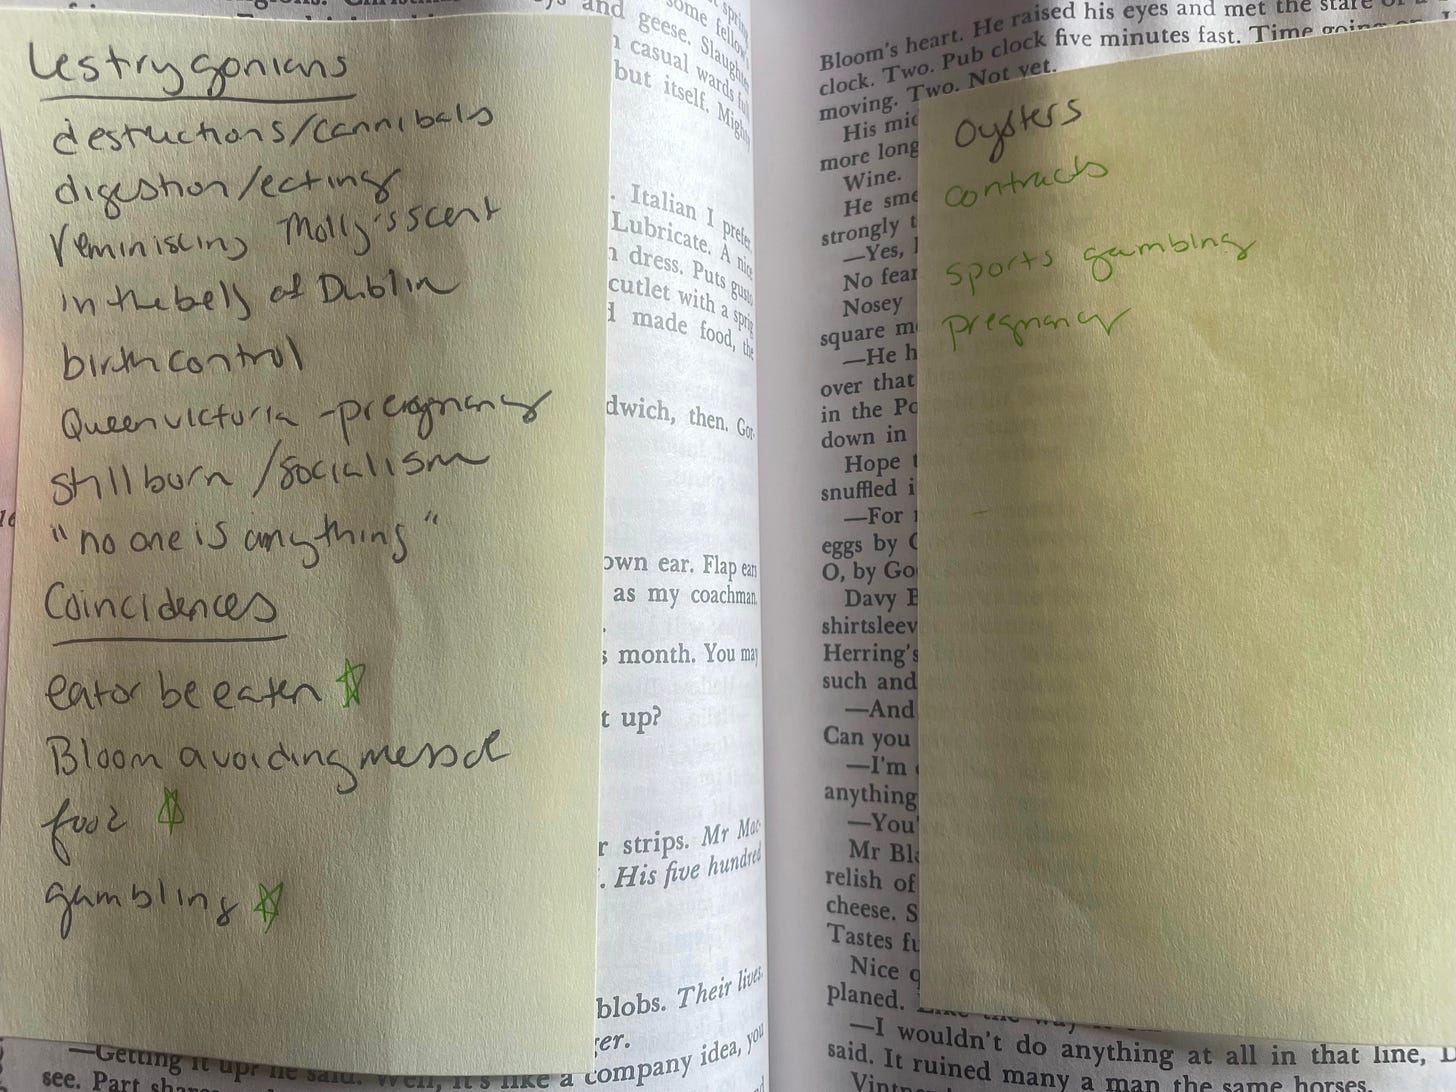 Lestrygonians
destructions/cannibals
digestion/eating
reminiscing Molly's scent
in the belly of Dublin
birth control
Queen victoria - pregnancy
still burn /socialism
"no one is anything"
Coincidences
eat or be eaten
Bloom avoiding
food
gambling
and geese.
some fellow
casual wards
but itself.
. Italian I prefer
Lubricate. A nice
dress. Puts gusto
cutlet with a sprig
made food, the
dwich, then. Gor-
own ear. Flap ears
as my coachman
s month. You may
t up?
r strips. Mr Mac-
. His five hundred
blobs. Their lives.
er.
—Getting it up? he said. Well, it's like a company idea, you
see. Part
Bloom's heart. He raised his eyes and met the stare of a
clock. Two. Pub clock five minutes fast. Time going on.
moving. Two. Not yet.
His mid
more long
Wine.
He sme
strongly t
—Yes,
No fear
Nosey
square m
—He h
over that
in the Po
down in
Hope t
snuffled i
—For
eggs by
O, by Go
Davy B
shirtsleev
Herring's
such and
—And
Can you
—I'm
anything
—You'
Mr Blo
relish of
cheese. S
Tastes fu
Nice q
planed. Like the way it
—I wouldn't do anything at all in that line,
said. It ruined many a man the same horses.
Vintn
Oysters
contracts
sports gambling
pregnancy